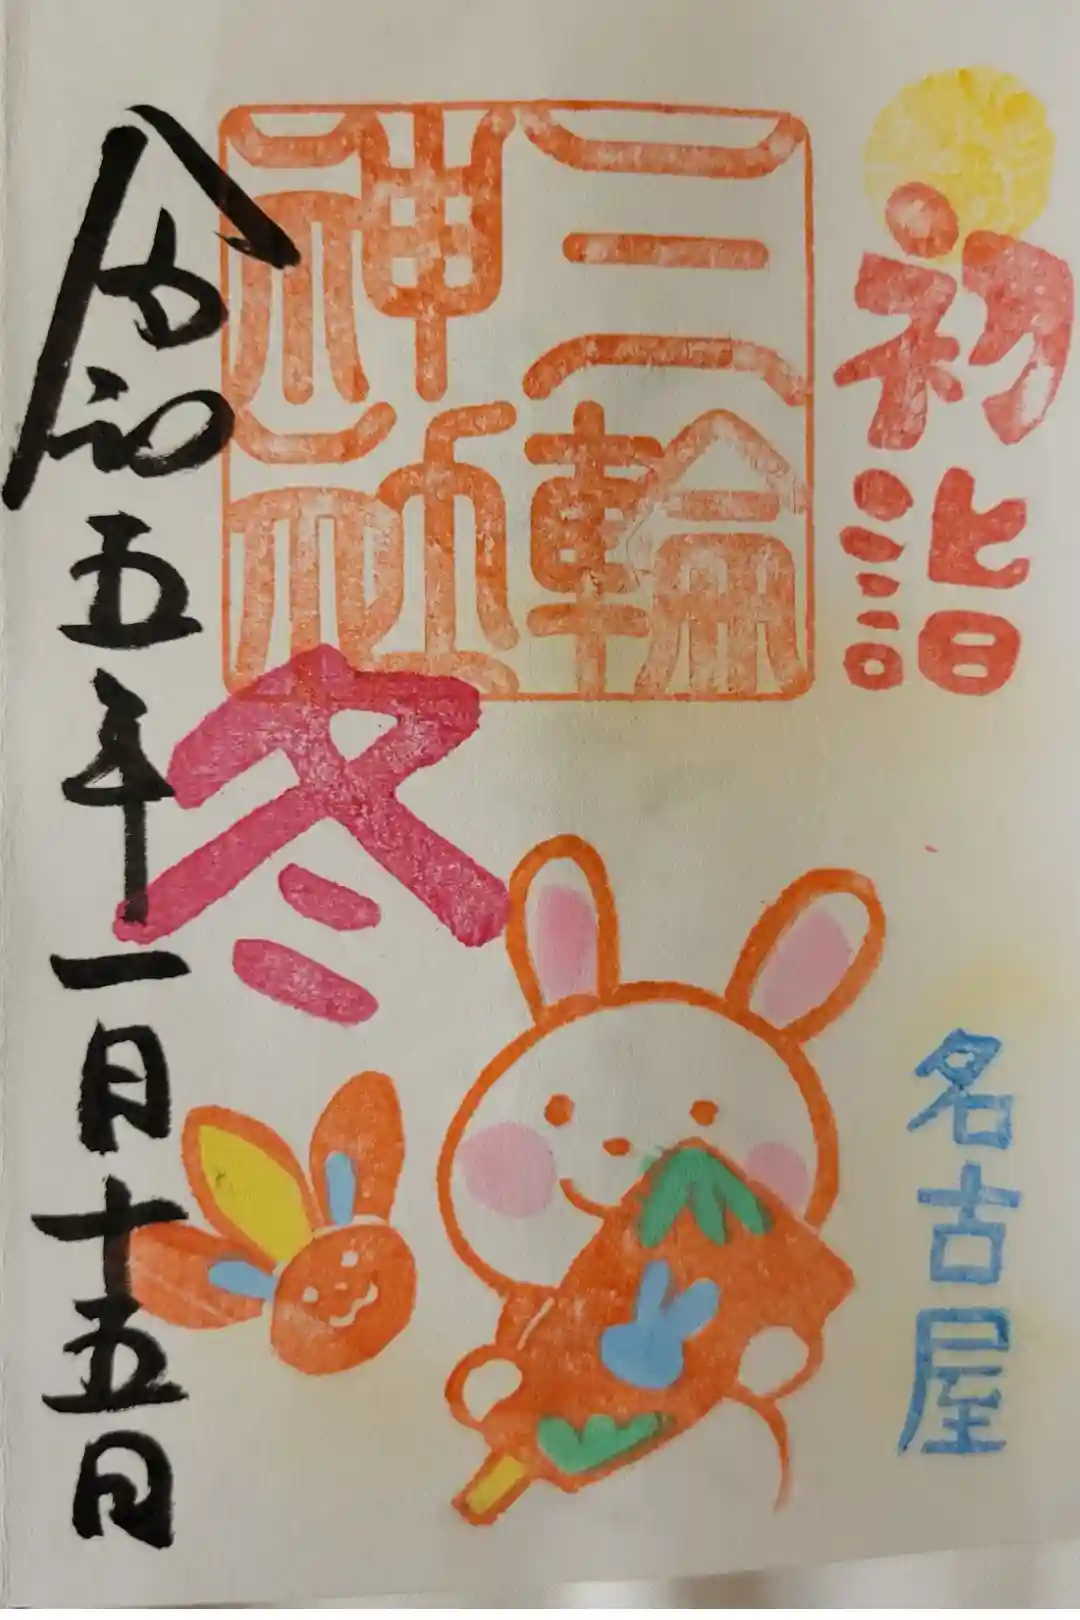 初詣
名古屋
三輪
神社
冬
令和五年一月十五日